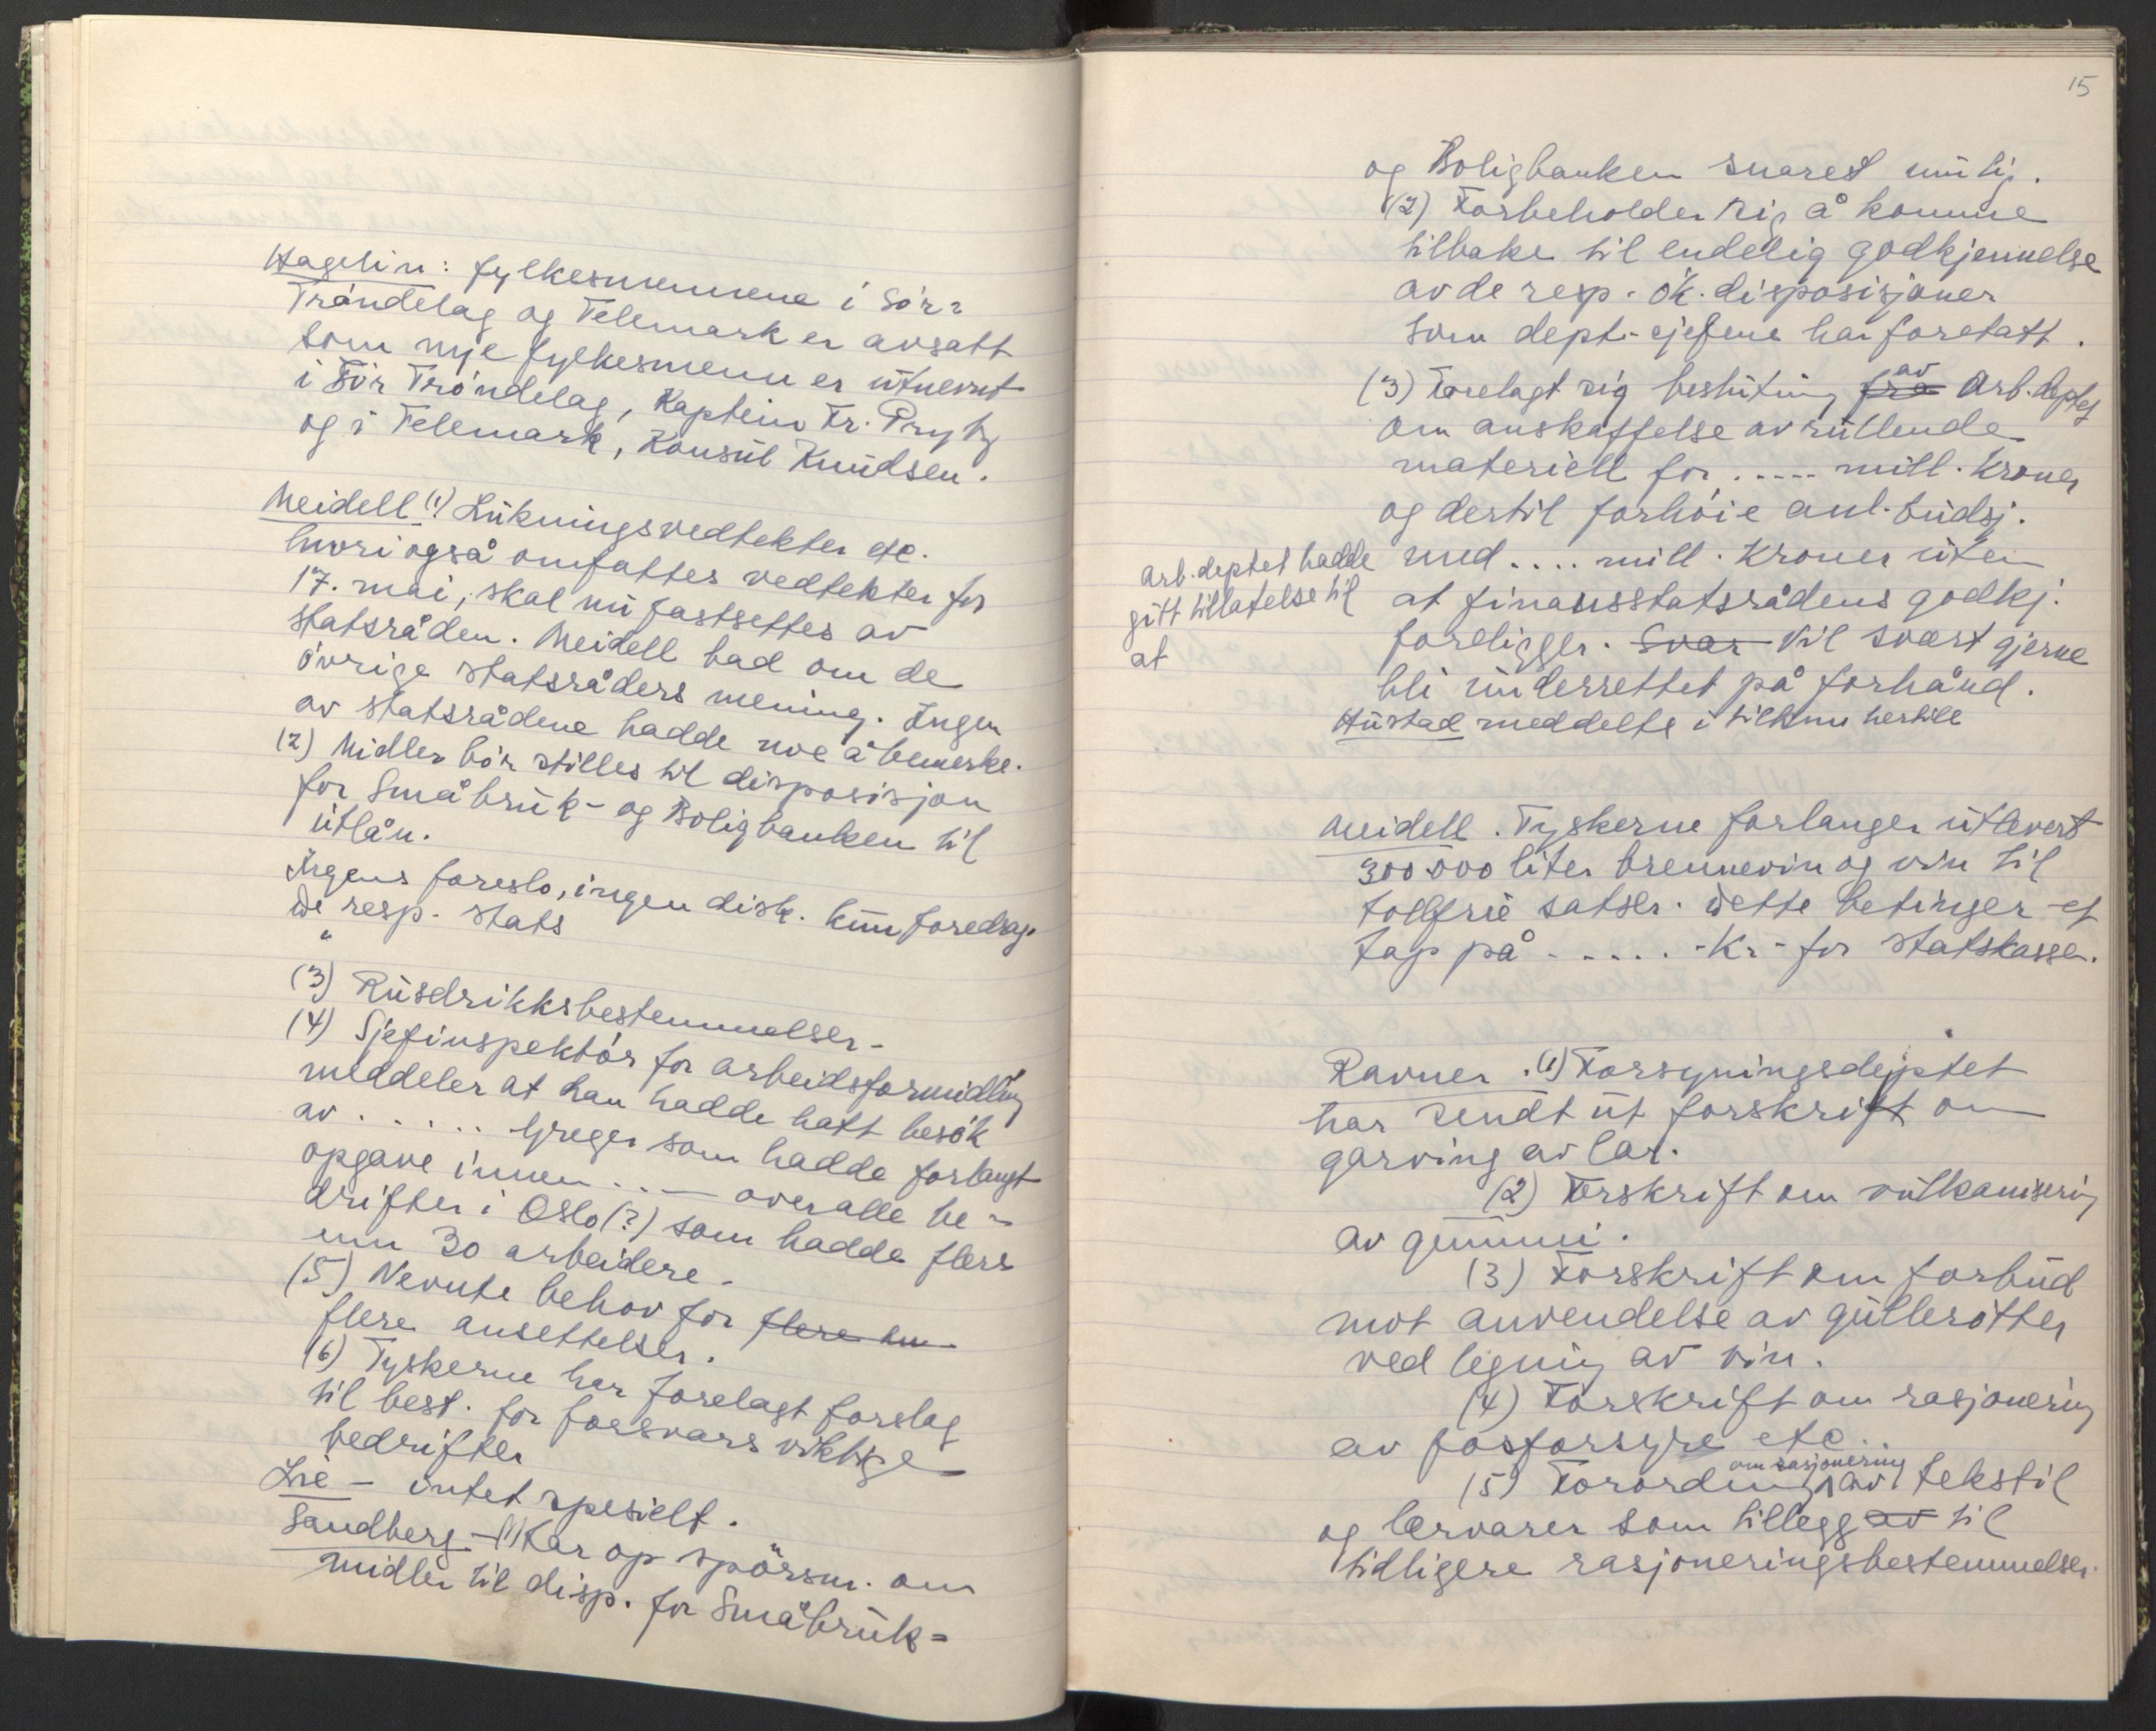 Hagelin: fylkesmennene i Sör-
Tröndelag og Telemark er avsatt
som nye fylkesmenn er utnevnt
i Sör Tröndelag, Kaptein Fr. Prytz
og i Telemark, Konsul Knudsen.
Meidell (1) Lukningsvedtekter etc.
hvori også omfattes vedtekter for
17. mai, skal nu fastsettes av
statsråden. Meidell bad om de
övrige statsråders mening. Ingen
av statsrådene hadde noe å bemerke.
(2) Midler bör stilles til disposisjon
for Småbruk- og Boligbanken til
utlån.
Irgens foreslo, ingen disk. kun foredrag.
de resp. stats
"
(3) Rusdrikksbestemmelser-
(4) Sjefinspektör for arbeidsformidling
meddeler at han hadde hatt besök
av ...... Greger som hadde forlangt
opgave innen ... — over alle be-
drifter i Oslo (?) som hadde flere
enn 30 arbeidere.
(5) Nevnte behov for flere an
flere ansettelser.
(6) Tyskerne har forelagt forslag
til best. for forsvarsviktige
bedrifter
Lie - intet spesielt.
Sandberg - (1) tar op spörsm. om
midler til disp. for Småbruk-
15
og Boligbanken snarest mulig.
(2) Forbeholder sig å komme
tilbake til endelig godkjennelse
av de resp. ök. disposisjoner
som dept-sjefene har foretatt.
(3) Forelagt sig beslutning fra av Arb.deptet
om anskaffelse av rullende
materiell for ..... mill. kroner
og dertil forhöie anl. budsj.
med .... mill. kroner uten
at finansstatsrådens godkj.
foreligger. Svar Vil svært gjerne
bli underrettet på forhånd.
Arb.deptet hadde
gitt tillatelse til
at
Hustad meddelte i tilkn. hertil
Meidell. Tyskerne forlanger utlevert
300.000 liter brennevin og vin til
tollfrie satser. Dette betinger et
tap på ..... Kr- for statskassen.
Ravner. (1) Forsyningsdeptet
har sendt ut forskrift om
garving av lær.
(2) Forskrift om vulkanisering
av gummi.
(3) Forskrift om forbud
mot anvendelse av gullerötter
ved legning av vin.
(4) Forskrift om rasjonering
av fosforsyre etc.
(5) Forordning om rasjonering av tekstil
og lærvarer som tillegg av til
tidligere rasjoneringsbestemmelser.